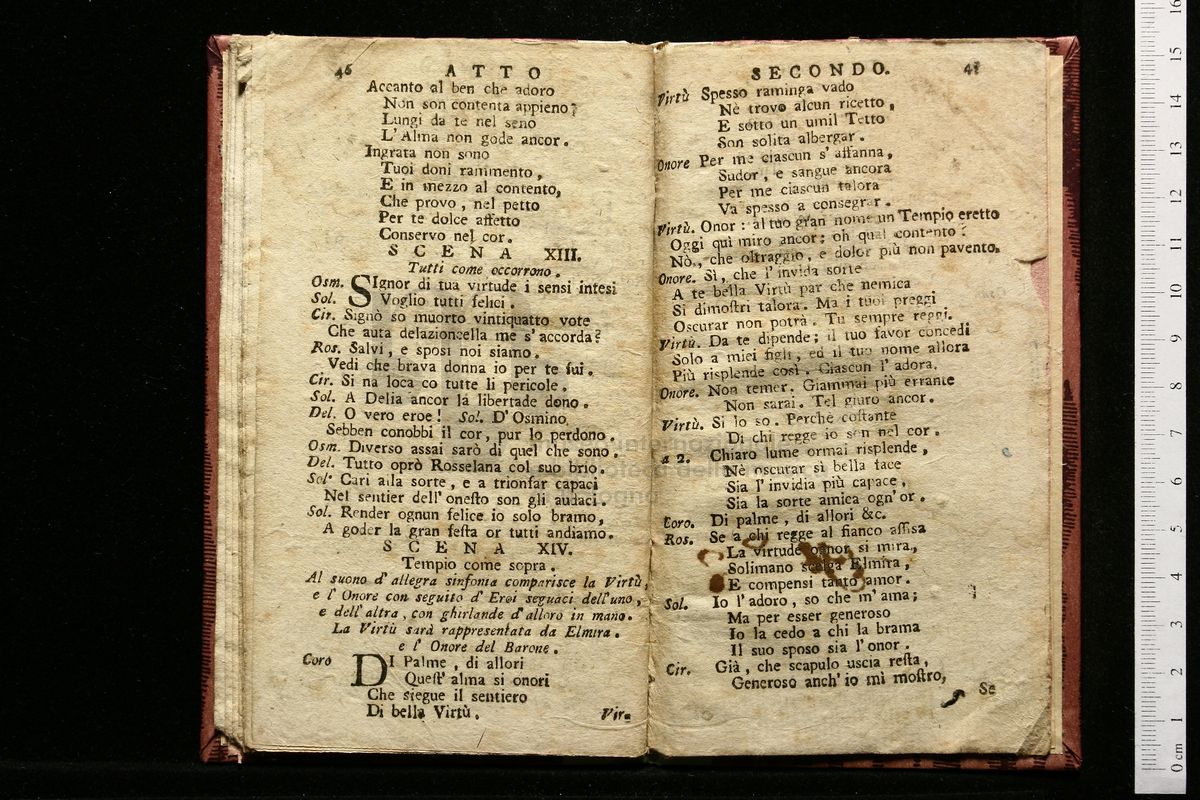 46 ATTO
Accanto al ben che adoro
Non son contenta appieno?
Lungi da te nel seno
L' Alma non gode ancor.
Ingrata non sono
Tuoi doni rammento,
E in mezzo al contento,
Che provo, nel petto
Per te dolce affetto
Conservo nel cor.
SCENA XIII.
Tutti come occorrono.
Osm. SIgnor di tua virtude i sensi intesi
Sol. Voglio tutti felici.
Cir. Signò so muorto vintiquatto vote
Che auta delazioncella me s'accorda?
Ros. Salvi, e sposi noi siamo.
Vedi che brava donna io per te fui.
Cir. Si na loca co tutte li pericole.
Sol. A Delia ancor la libertade dono.
Del. O vero eroe! Sol. D'Osmino
Sebben conobbi il cor, pur lo perdono.
Osm. Diverso assai sarò di quel che sono.
Del. Tutto oprò Rosselana col suo brio.
Sol. Cari alla sorte, e a trionfar capaci
Nel sentier dell'onesto son gli audaci.
Sol. Render ognun felice io solo bramo,
A goder la gran festa or tutti andiamo.
SCENA XIV.
Tempio come sopra.
Al suono d'allegra sinfonia comparisce la Virtù,
e l'Onore con seguito d'Eroi seguaci dell'uno,
e dell'altra, con ghirlande d'alloro in mano.
La Virtù sarà rappresentata da Elmira.
e l' Onore del Barone.
Coro DI Palme, di allori
Quest' alma si onori
Che siegue il sentiero
Di bella Virtù.
Vir-
SECONDO. 47
Virtù Spesso raminga vado
Nè trovo alcun ricetto,
E sotto un umil Tetto
Son solita albergar.
Onore Per me ciascun s' affanna,
Sudor, e sangue ancora
Per me ciascun talora
Va spesso a consegrar.
Virtù. Onor: al tuo gran nome un Tempio eretto
Oggi quì miro ancor: oh qual contento!
Nò, che oltraggio, e dolor più non pavento.
Onore. Sì, che l'invida sorte
A te bella Virtù par che nemica
Si dimostri talora. Ma i tuoi preggi
Oscurar non potrà. Tu sempre reggi.
Virtù. Da te dipende; il tuo favor concedi
Solo a miei figli, ed il tuo nome allora
Più risplende così. Ciascun l'adora.
Onore. Non temer. Giammai più errante
Non sarai. Tel giuro ancor.
Virtù. Sì lo so. Perchè costante
Di chi regge io son nel cor.
a 2. Chiaro lume ormai risplende,
Nè oscurar sì bella face
Sia l'invidia più capace,
Sia la sorte amica ogn'or.
Coro. Di palme, di allori &c.
Ros. Se a chi regge al fianco assisa
La virtude ognor si mira,
Solimano scelga Elmira,
E compensi tanto amor.
Sol. Io l'adoro, so che m'ama;
Ma per esser generoso
Io la cedo a chi la brama
Il suo sposo sia l'onor.
Cir. Già, che scapulo uscia resta,
Generoso anch'io mì mostro,
Se